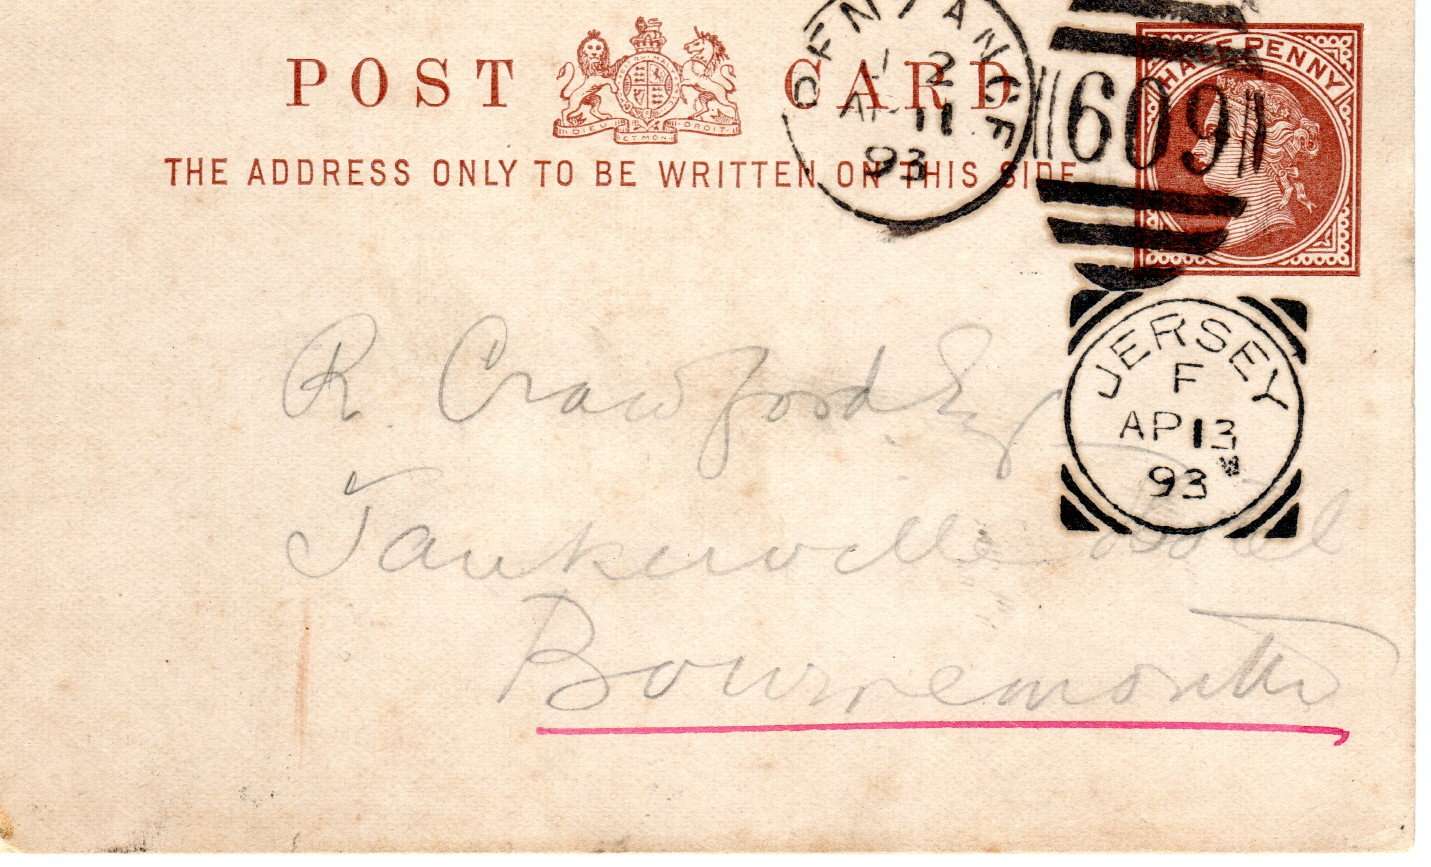 POST CARD
DIEU ET MON DROIT
THE ADDRESS ONLY TO BE WRITTEN ON THIS SIDE
PENZANCE
2
AP 11
93
609
HALF PENNY
JERSEY
F
AP 13
93
R. Crawford Esq
Tankerville Hotel
Bournemouth